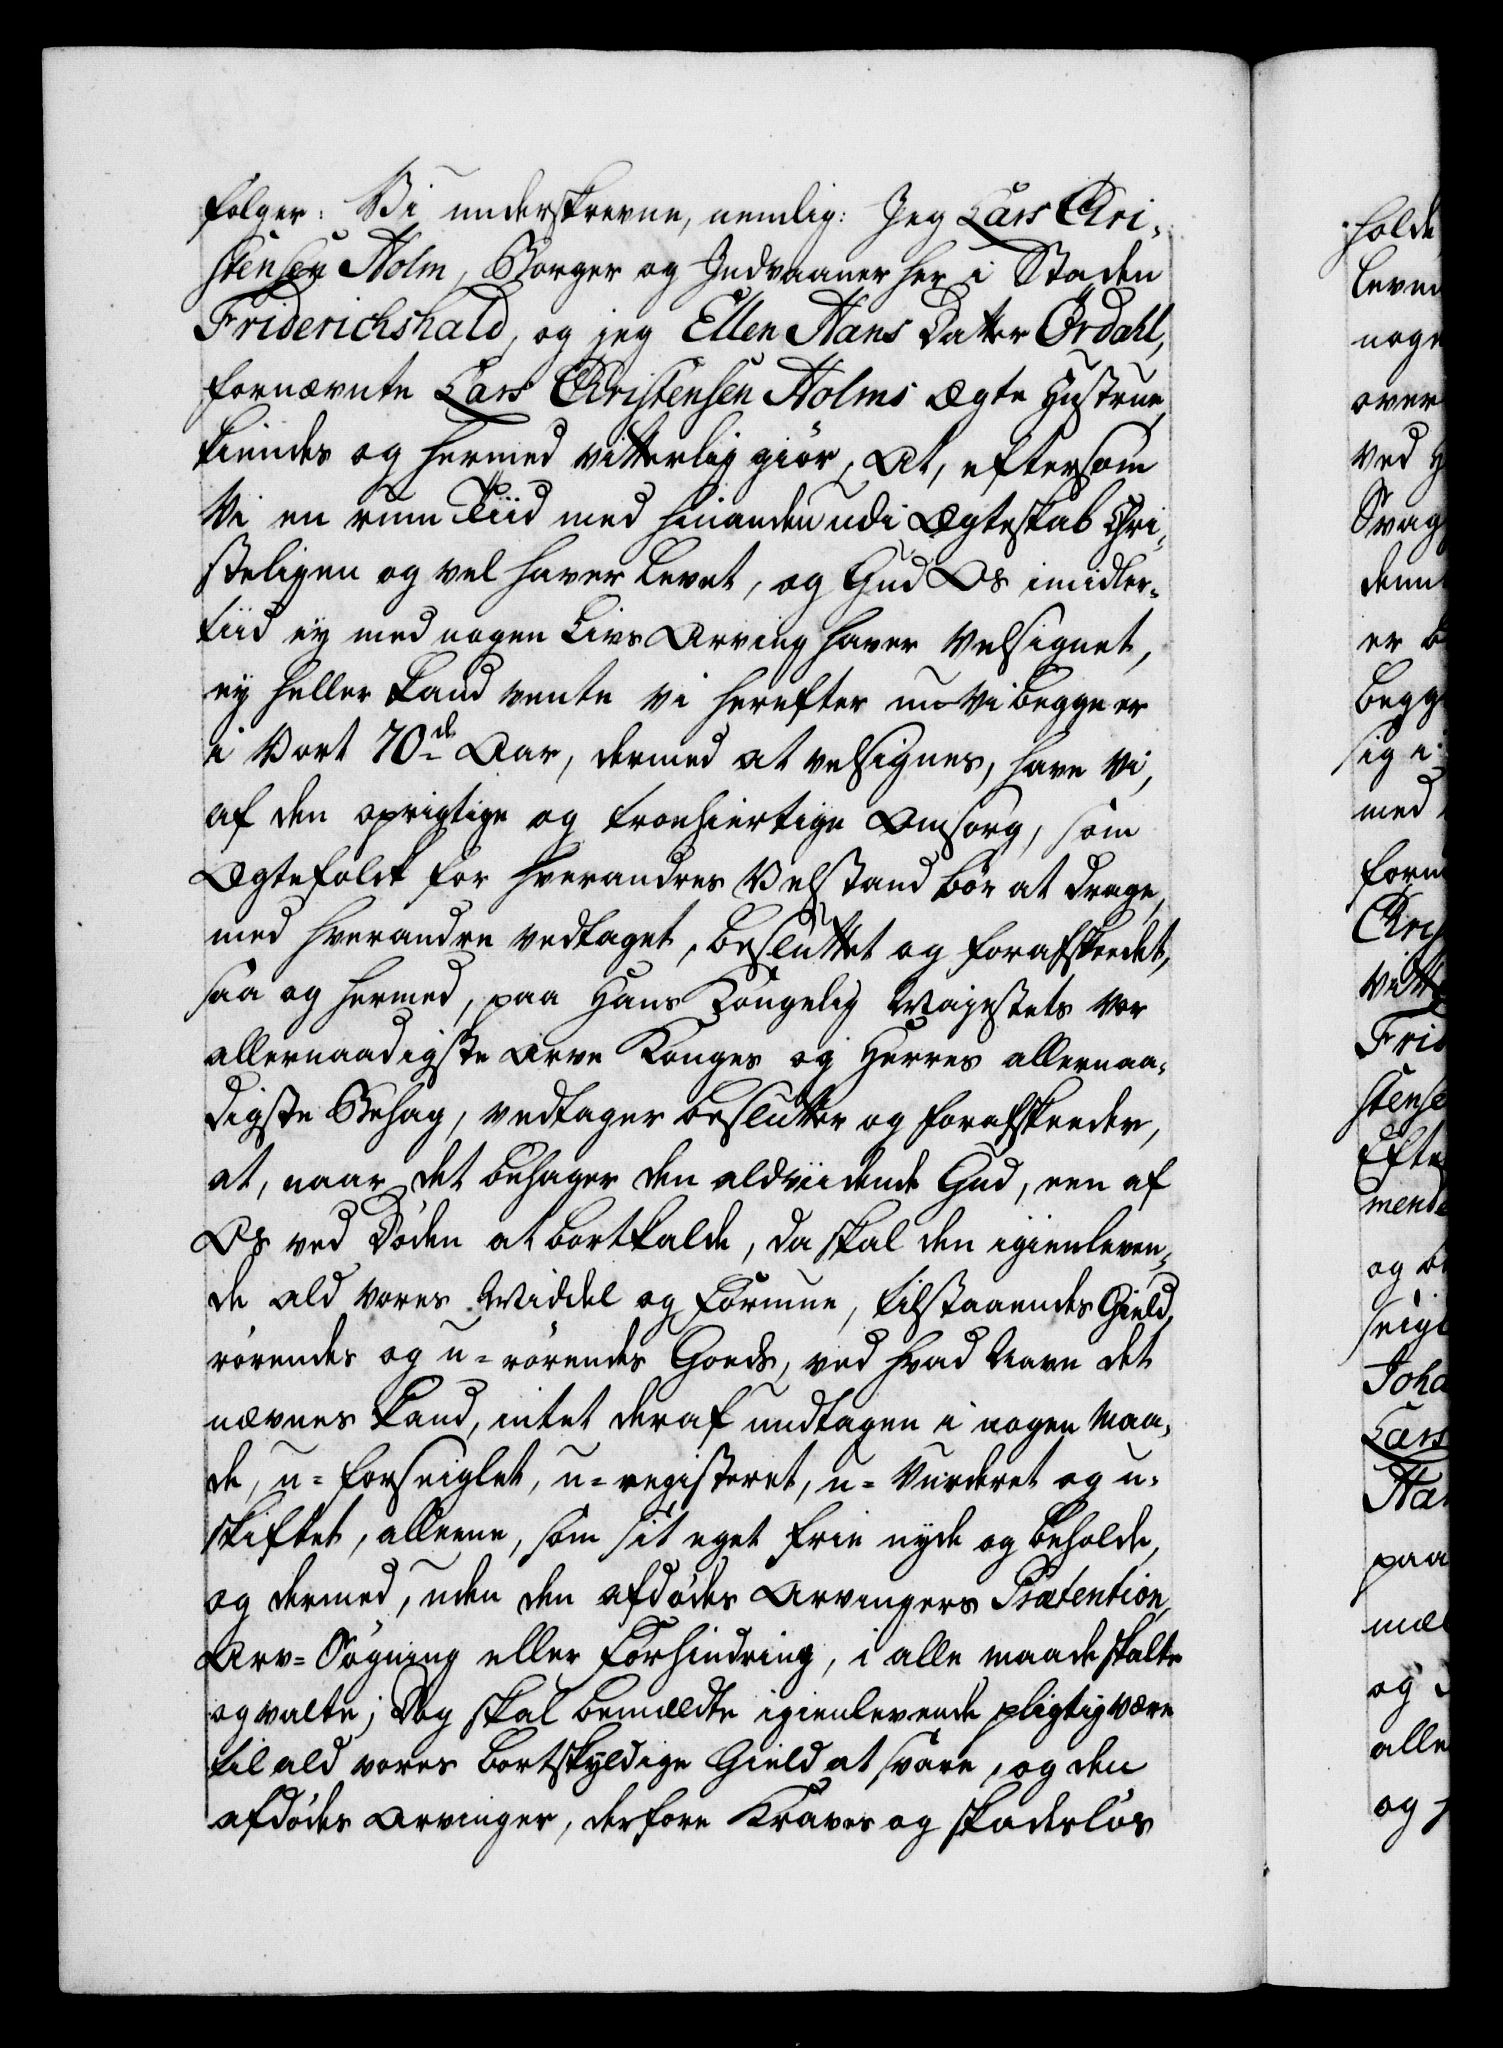 følger: Vi underskrevne, nemlig: Jeg Lars Chri-
stensen Holm, Borger og Indvaaner her i Staden
Friderichshald, og jeg Ellen Hans Datter Ørdahl,
fornævnte Lars Christensen Holms Ægte Hustrue,
kiendes og hermed vitterlig giør, At, eftersom
Vi en rum Tiid med hinanden udi Ægteskab Chri-
steligen og vel haver levet, og Gud Os imidler-
tiid ey med nogen Livs Arving haver velsignet,
ey heller kand vente vi herefter nu vi begge er
i Vort 70de Aar, dermed at velsignes, have Vi,
af den oprigtige og troehiertige Omsorg, som
Ægtefolck for hverandres Velstand bør at drage,
med hverandre vedtaget, besluttet og forafskeedet,
saa og hermed, paa Hans Kongelig Mayestets vor
allernaadigste Arve Konges og Herres allernaa-
digste Behag, vedtager beslutter og forafskeeder,
at, naar det behager den aldviidende Gud, een af
Os ved Døden at bortkalde, da skal den igienleven-
de ald vores Middel og Formue, tilstaaendes Gield,
rørendes og u-rørendes Goeds, ved hvad Navn det
nævnes kand, intet deraf undtagen i nogen Maa-
de, u-forseiglet, u-registeret, u-Vurderet og u-
skiftet, alleene, som sit eget frie nyde og beholde,
og dermed, uden den afdødes Arvingers Prætention,
Arv-Søgning eller Forhindring, i alle maade skalte
og valte; Dog skal bemeldte igienlevende pligtig være
til ald vores bortskyldige Gield at svare, og den
afdødes Arvinger, derfore Kraves og skadesløs
holde